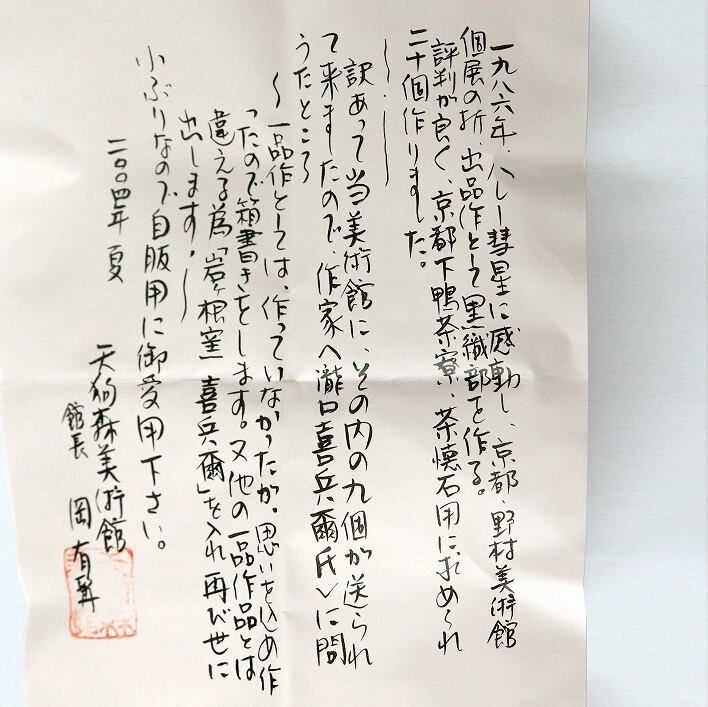 一九八六年、ハレー彗星に感動し、京都・野村美術館
個展の折、出品作として黒織部を作る。
評判が良く、京都下鴨茶寮、茶懐石用に求められ
二十個作りました。
訳あって当美術館に、その内の九個が送られ
て来ましたので、作家へ瀧口喜兵爾氏〉に問
うたところ
〜一品作としては、作っていなかったが、思いを込め作
ったので箱書きをします。又他の一品作品とは
違える為「岩ヶ根窯」喜兵爾」を入れ再び世に
出します。〜
小ぶりなので自販用に御愛用下さい。
二〇〇四年 夏
天狗森美術館
館長 岡 有